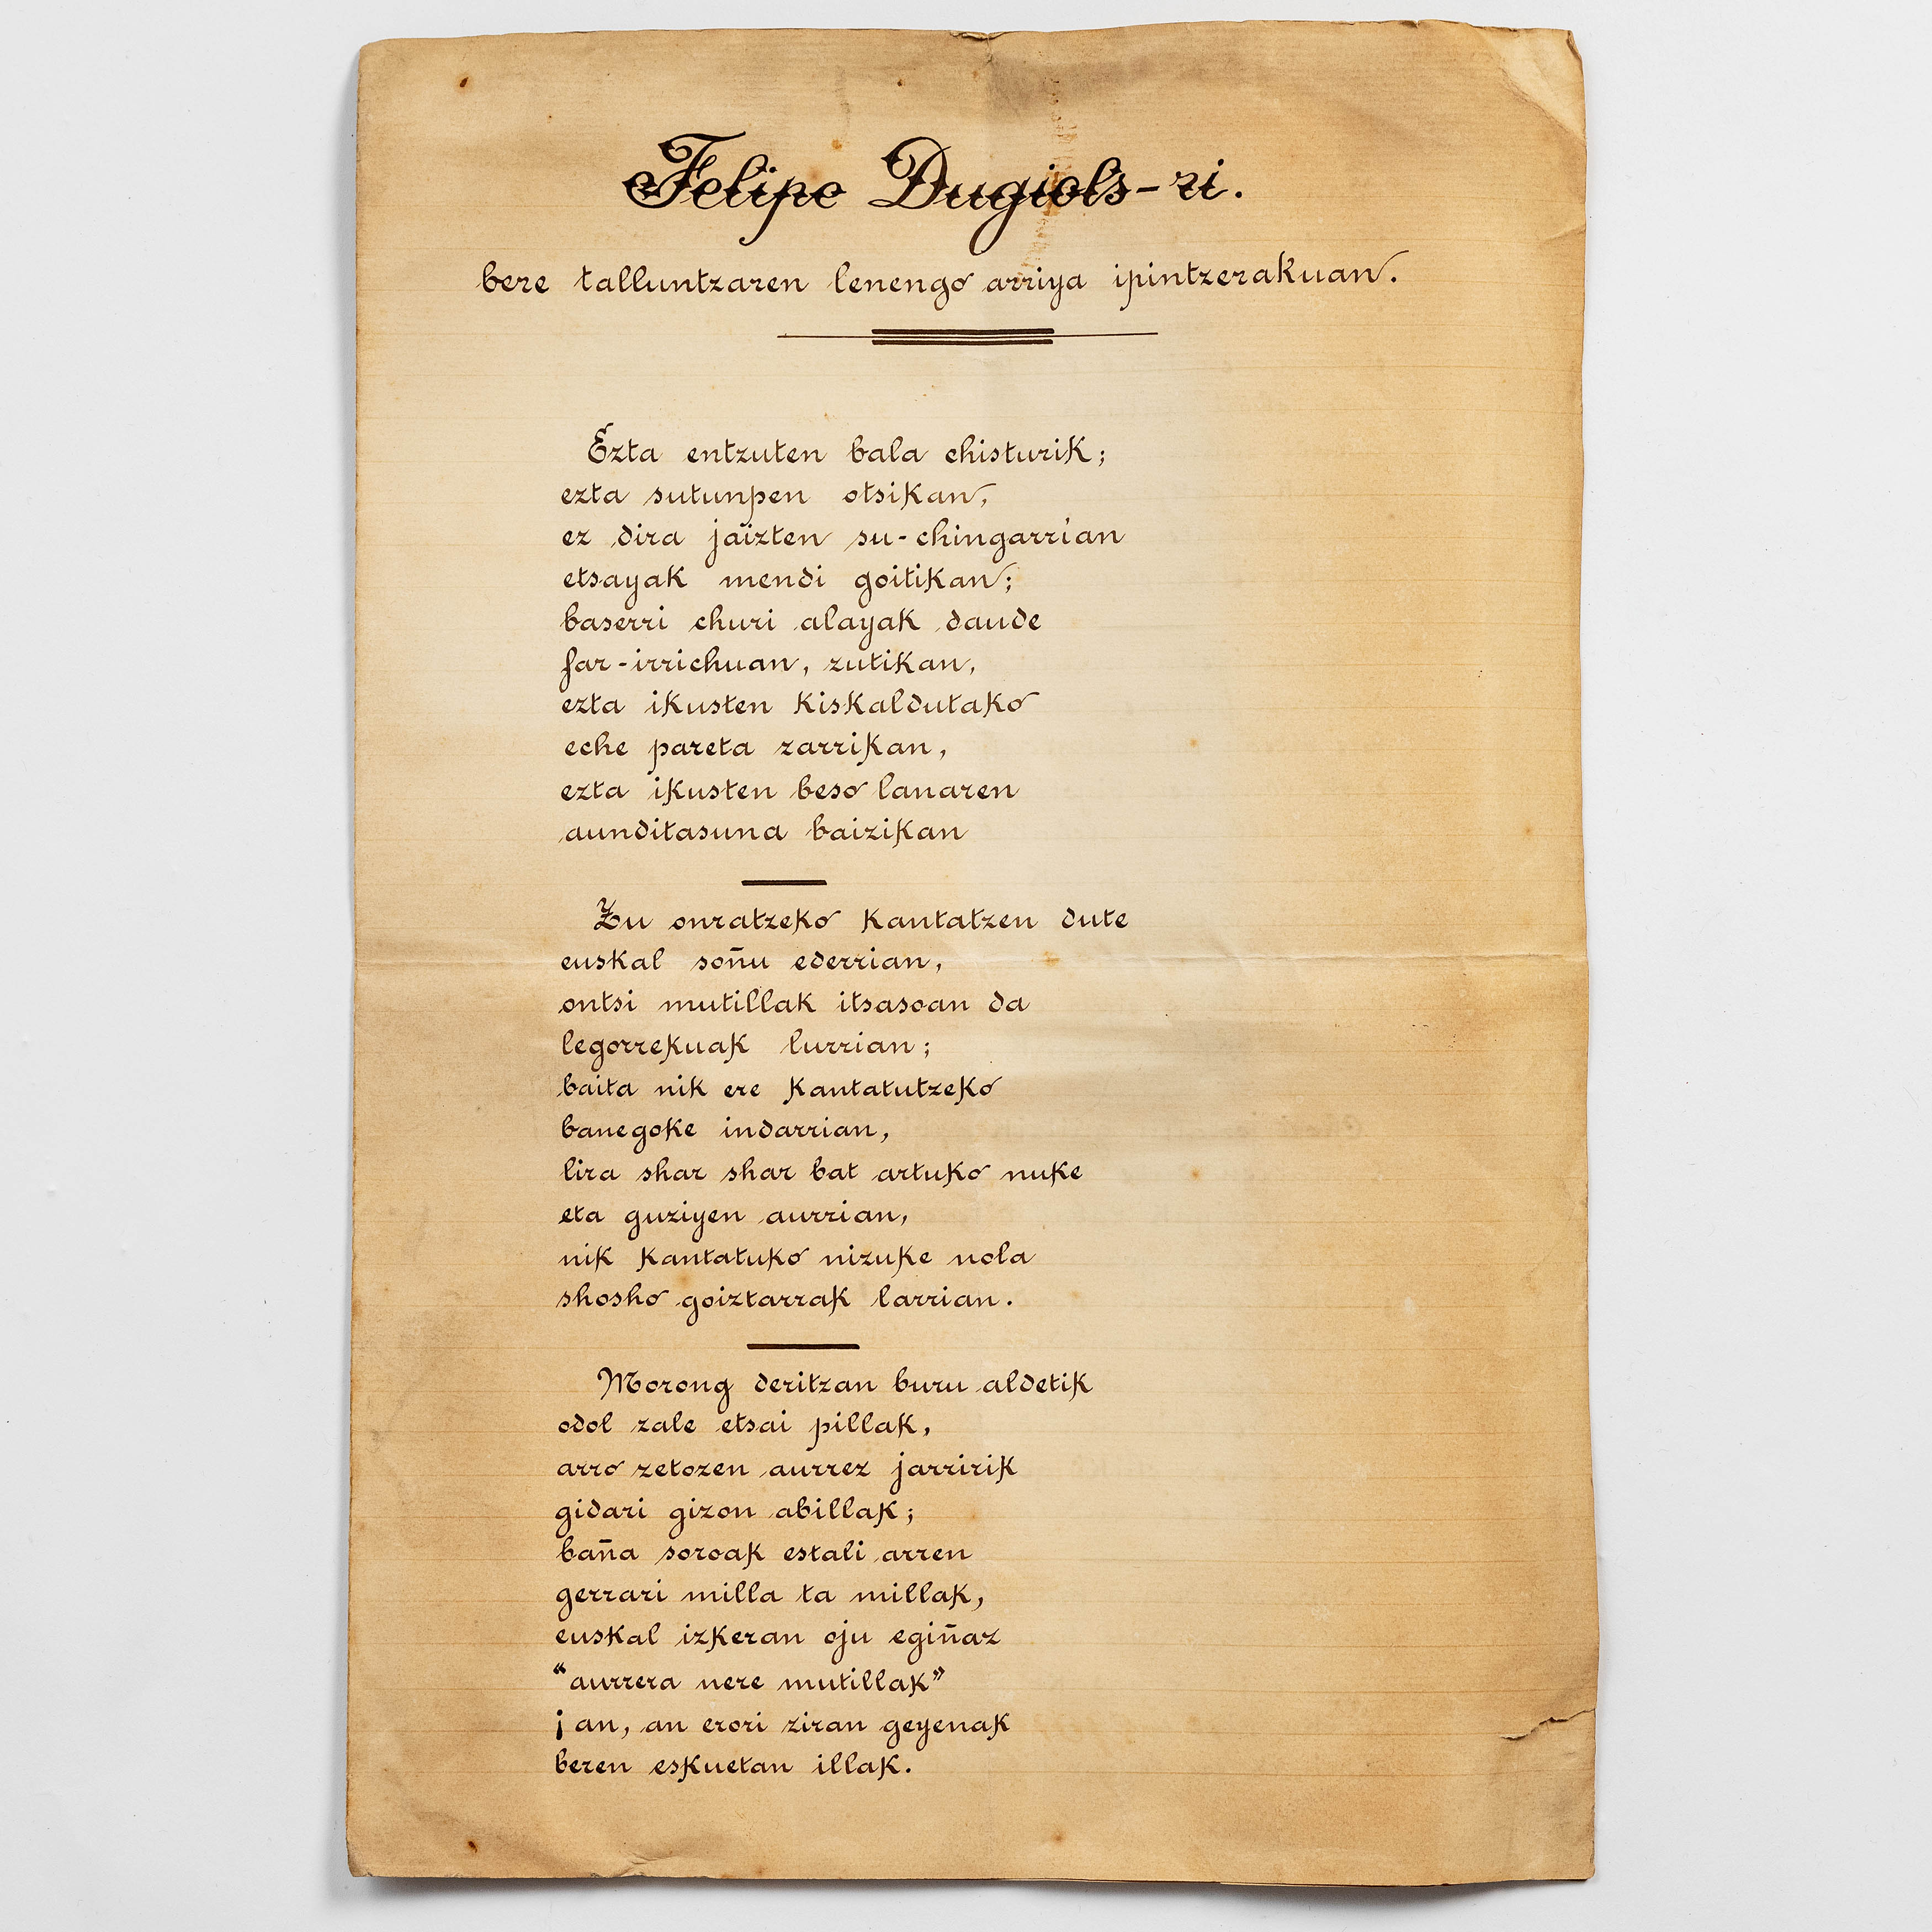 Felipe Dugiols-ri.
bere talluntzaren lenengo arriya ipintzerakuan.
Ezta entzuten bala chisturik;
ezta sutunpen otsikan,
ez dira jaizten su-chingarrian
etsayak mendi goitikan;
baserri churi alayak daude
far-irrichuan, zutikan,
ezta ikusten kiskaldutako
eche pareta zarrikan,
ezta ikusten beso lanaren
aunditasuna baizikan
Zu onratzeko kantatzen dute
euskal soñu ederrian,
ontsi mutillak itsasoan da
legorrekuak lurrian;
baita nik ere kantatutzeko
banegoke indarrian,
lira shar shar bat artuko nuke
eta guziyen aurrian,
nik kantatuko nizuke nola
shosho goiztarrak larrian.
Morong deritzan buru aldetik
odol zale etsai pillak,
arro zetozen aurrez jarririk
gidari gizon abillak;
baña soroak estali arren
gerrari milla ta millak,
euskal izkeran oju egiñaz
"aurrera nere mutillak"
¡an, an erori ziran geyenak
beren eskuetan illak.